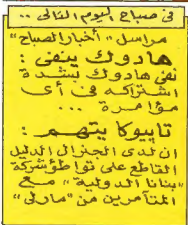 فى صباح اليوم التالى ..
مراسل "أخبار الصباح"
هادوك ينفى :
نفى هادوك بشدة
اشتراكه فى أى
مؤامرة ...
تابيوكا يتهم :
ان لدى الجنرال الدليل
القاطع على تواطؤ شركة
"بنانا الدولية" مع
المتآمرين من "مارلى"